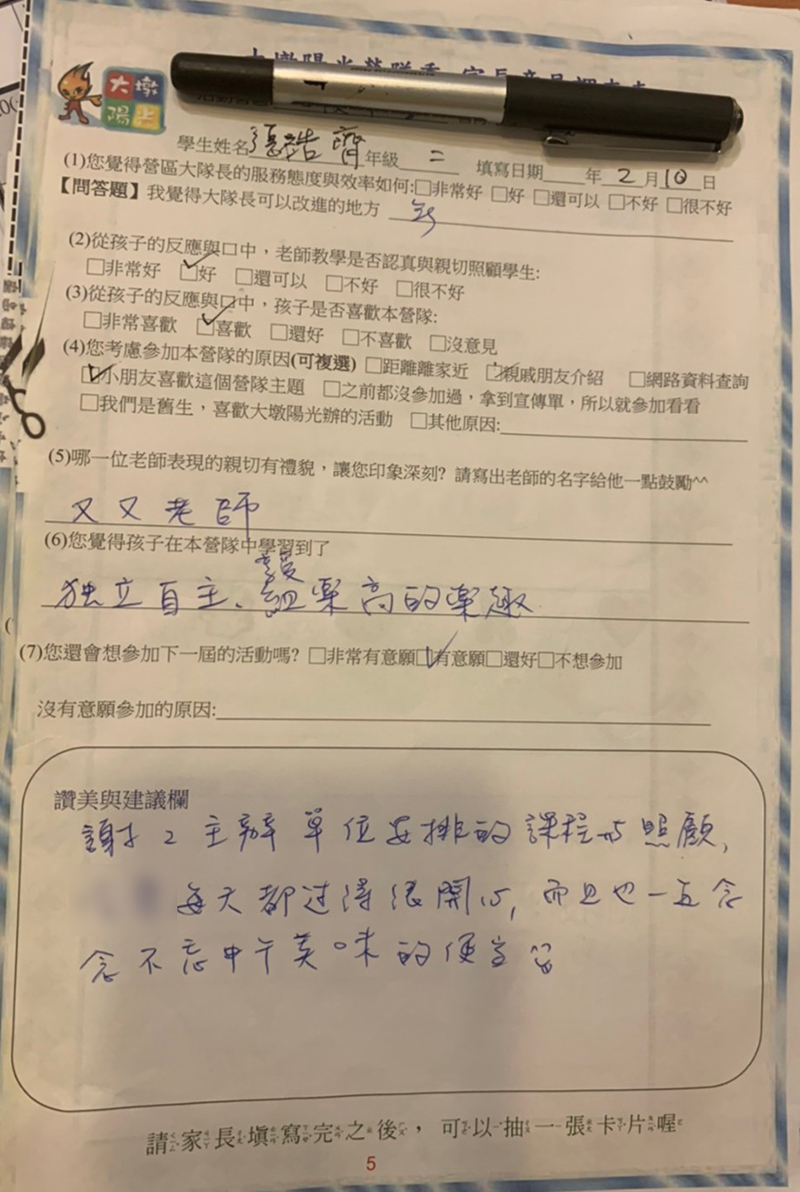 大墩
陽光
學生姓名 張浩齊 年級 二 填寫日期 年 2 月 10 日
(1)您覺得營區大隊長的服務態度與效率如何:□非常好 □好 □還可以 □不好 □很不好
【問答題】我覺得大隊長可以改進的地方
(2)從孩子的反應與口中，老師教學是否認真與親切照顧學生:
□非常好 ☑好 □還可以 □不好 □很不好
(3)從孩子的反應與口中，孩子是否喜歡本營隊:
□非常喜歡 ☑喜歡 □還好 □不喜歡 □沒意見
(4)您考慮參加本營隊的原因(可複選) □距離離家近 ☑親戚朋友介紹 □網路資料查詢
☑小朋友喜歡這個營隊主題 □之前都沒參加過，拿到宣傳單，所以就參加看看
□我們是舊生，喜歡大墩陽光辦的活動 □其他原因:
(5)哪一位老師表現的親切有禮貌，讓您印象深刻? 請寫出老師的名字給他一點鼓勵^^
又又老師
(6)您覺得孩子在本營隊中學習到了
独立自主、組樂高的樂趣
(7)您還會想參加下一屆的活動嗎? □非常有意願☑有意願□還好□不想參加
沒有意願參加的原因:
讚美與建議欄
謝謝主辦單位安排的課程與照顧,
每天都过得很開心, 而且也一直念
念不忘中午美味的便當
請家長填寫完之後，可以抽一張卡片喔
5